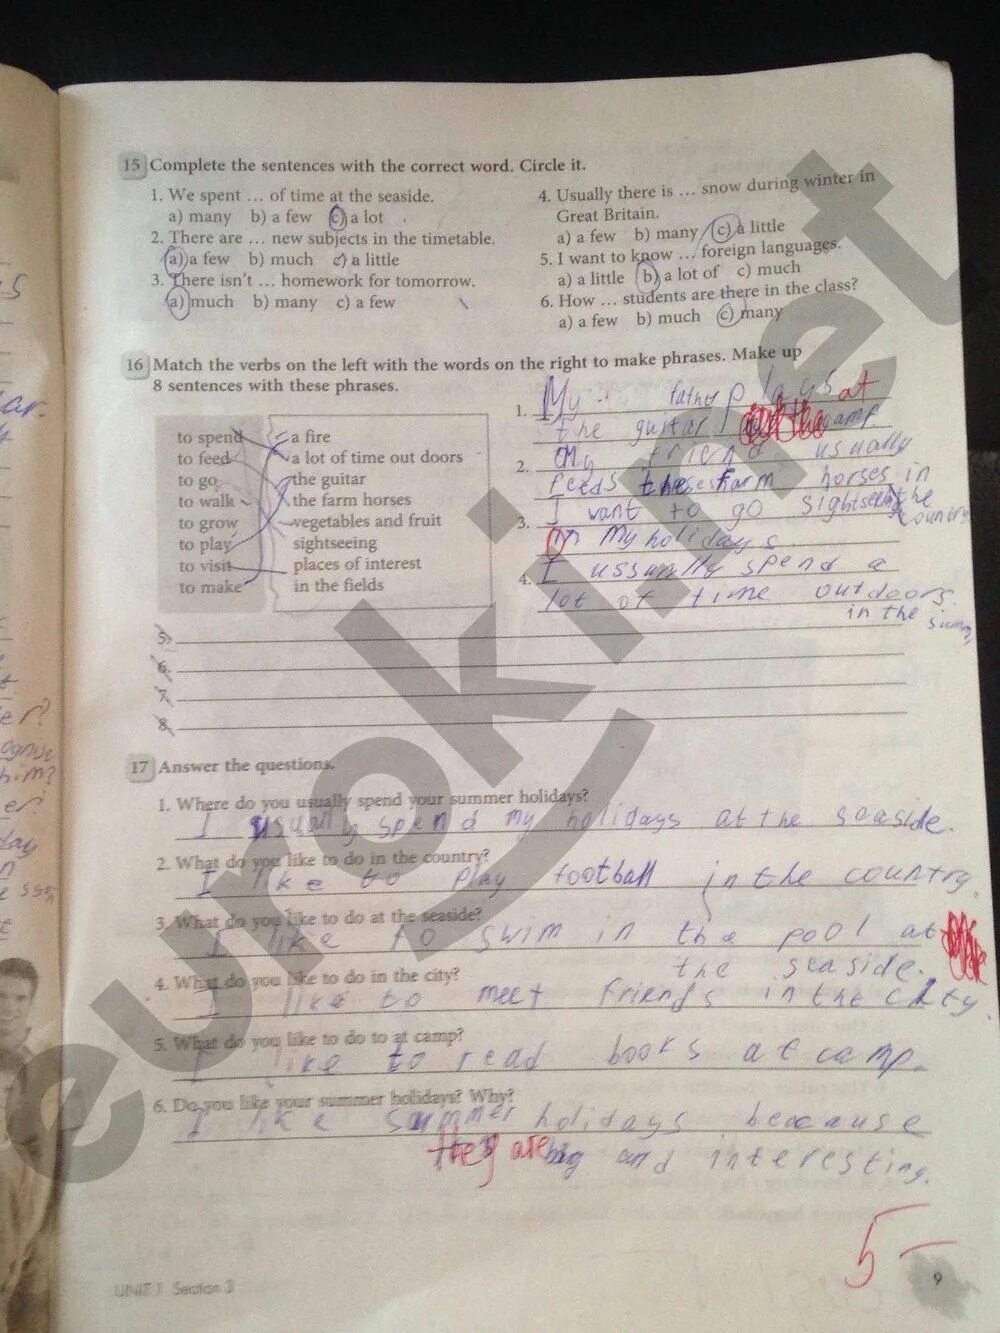 15 Complete the sentences with the correct word. Circle it.
1. We spent ... of time at the seaside.
a) many b) a few c) a lot
2. There are ... new subjects in the timetable.
a) a few b) much c) a little
3. There isn't ... homework for tomorrow.
a) much b) many c) a few
4. Usually there is ... snow during winter in
Great Britain.
a) a few b) many c) a little
5. I want to know ... foreign languages.
a) a little b) a lot of c) much
6. How ... students are there in the class?
a) a few b) much c) many
16 Match the verbs on the left with the words on the right to make phrases. Make up
8 sentences with these phrases.
to spend
to feed
to go
to walk
to grow
to play
to visit
to make
a fire
a lot of time out doors
the guitar
the farm horses
vegetables and fruit
sightseeing
places of interest
in the fields
1. My father plays at
the guitar camp.
2. My friend usually
feeds farm horses in
the
country
3. I want to go sightseeing
in my holidays
4. I ussually spend a
lot of time outdoors.
in the
5.
6.
7.
8.
17 Answer the questions.
1. Where do you usually spend your summer holidays?
I usually spend my holidays at the seaside.
2. What do you like to do in the country?
I like to play football in the country.
3. What do you like to do at the seaside?
I like to swim in the pool at
the seaside.
4. What do you like to do in the city?
I like to meet friends in the city.
5. What do you like to do to at camp?
I like to read books at camp.
6. Do you like your summer holidays? Why?
I like summer holidays because
they are big and interesting.
5-
UNIT 1 Section 3
9
ar.
er?
him?
er
day
eurokinet